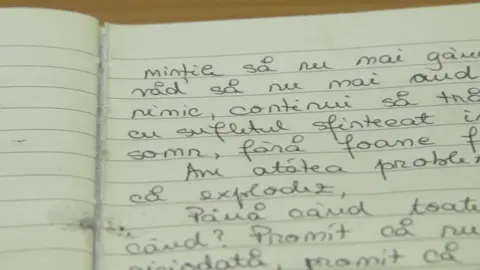 mințile să nu mai gân
văd să nu mai aud
nimic, continui să tră
cu sufletul
somn, fără foame f
Am atâtea proble
că explodez,
Până când toate
când? Promit că nu
niciodată, promit că